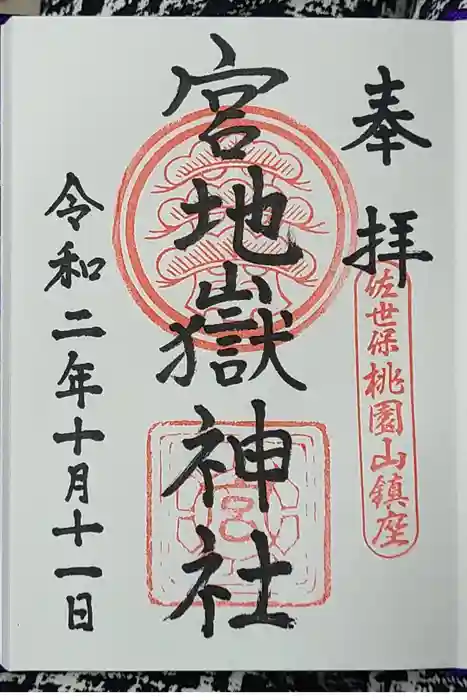 奉拝
佐世保桃園山鎮座
宮地嶽神社
宮
令和二年十月十一日